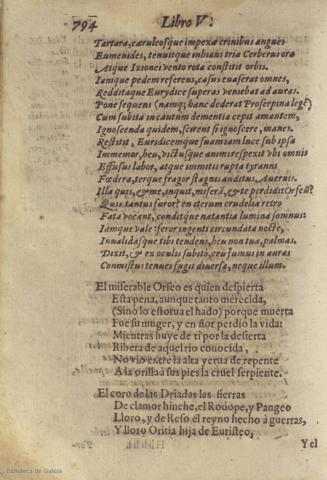 794 Libro V.
Tartara, cæruleosque impexa crinibus angues
Eumenides, tenuitque inhians tria Cerberus ora
Atque Ixionei vento rota constitit orbis.
Iamque pedem referens, casus euaserat omnes,
Redditaque Eurydice superas veniebat ad auras.
Pone sequens (namq; hanc dederat Proserpina legē)
Cum subita incautum dementia cepit amantem,
Ignoscenda quidem, scirent si ignoscere, manes.
Restitit, Euridicemque suam iam luce sub ipsa
Immemor, heu, victusque animi respexit vbi omnis
Effusus labor, atque immitis rupta tyranni
Fœdera, terque fragor stagnis auditus, Auernis.
Illa quis, & me, inquit, miserā, & te perdidit Orfeu?
Quis tantus furor? en iterum crudelia retro
Fata vocant, conditque natantia lumina somnus:
Iamque vale: feror ingenti circundata nocte,
Inualidasque tibi tendens, heu non tua, palmas.
Dixit, & ex oculis subitò, ceu fumus in auras
Commistus tenues fugit diuersa, neque illum.
El miserable Orfeo es quien despierta
Esta pena, aunque tanto merecida,
(Sino lo estorua el hado) porque muerta
Fue su muger, y en flor perdio la vida:
Mientras huye de ti por la desierta
Ribera de aquel rio conocida,
No vio entre la alta yerua de repente
A la orilla à sus pies la cruel serpiente.
El coro de las Driadas las sierras
De clamor hinche, el Rodope, y Pangeo
Lloro, y de Reso el reyno hecho à guerras,
Y lloro Oritia hija de Euristeo,
Y el
Biblioteca de Galicia